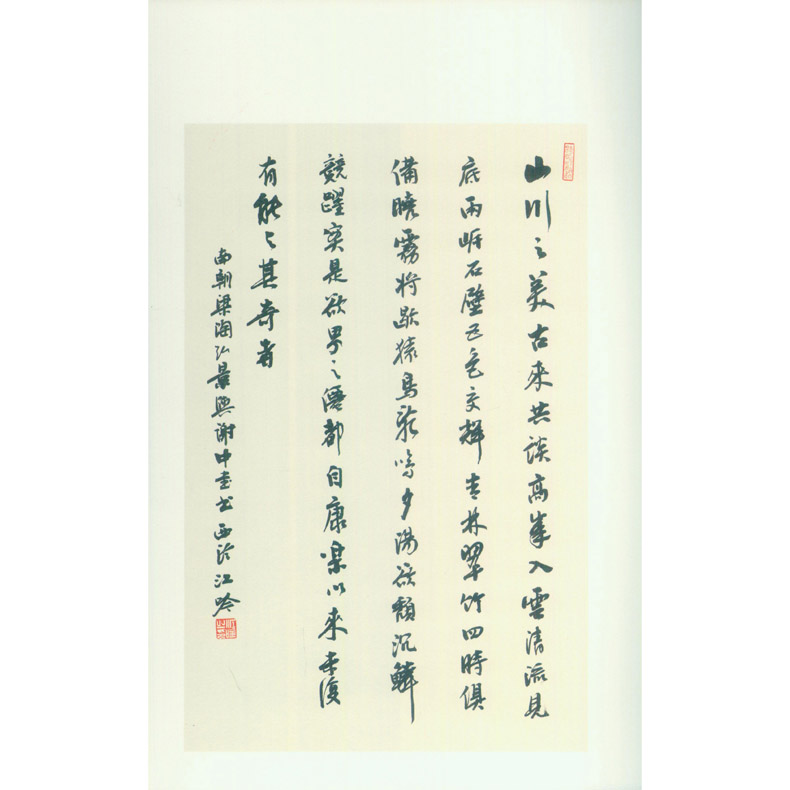 山川之美古來共談高峯入雲清流見
底兩岸石壁五色交輝青林翠竹四時俱
備曉霧將歇猿鳥亂鳴夕陽欲頹沉鱗
競躍實是欲界之僊都自康樂以來未復
有能與其奇者
南朝梁陶弘景與謝中書書西泠江吟